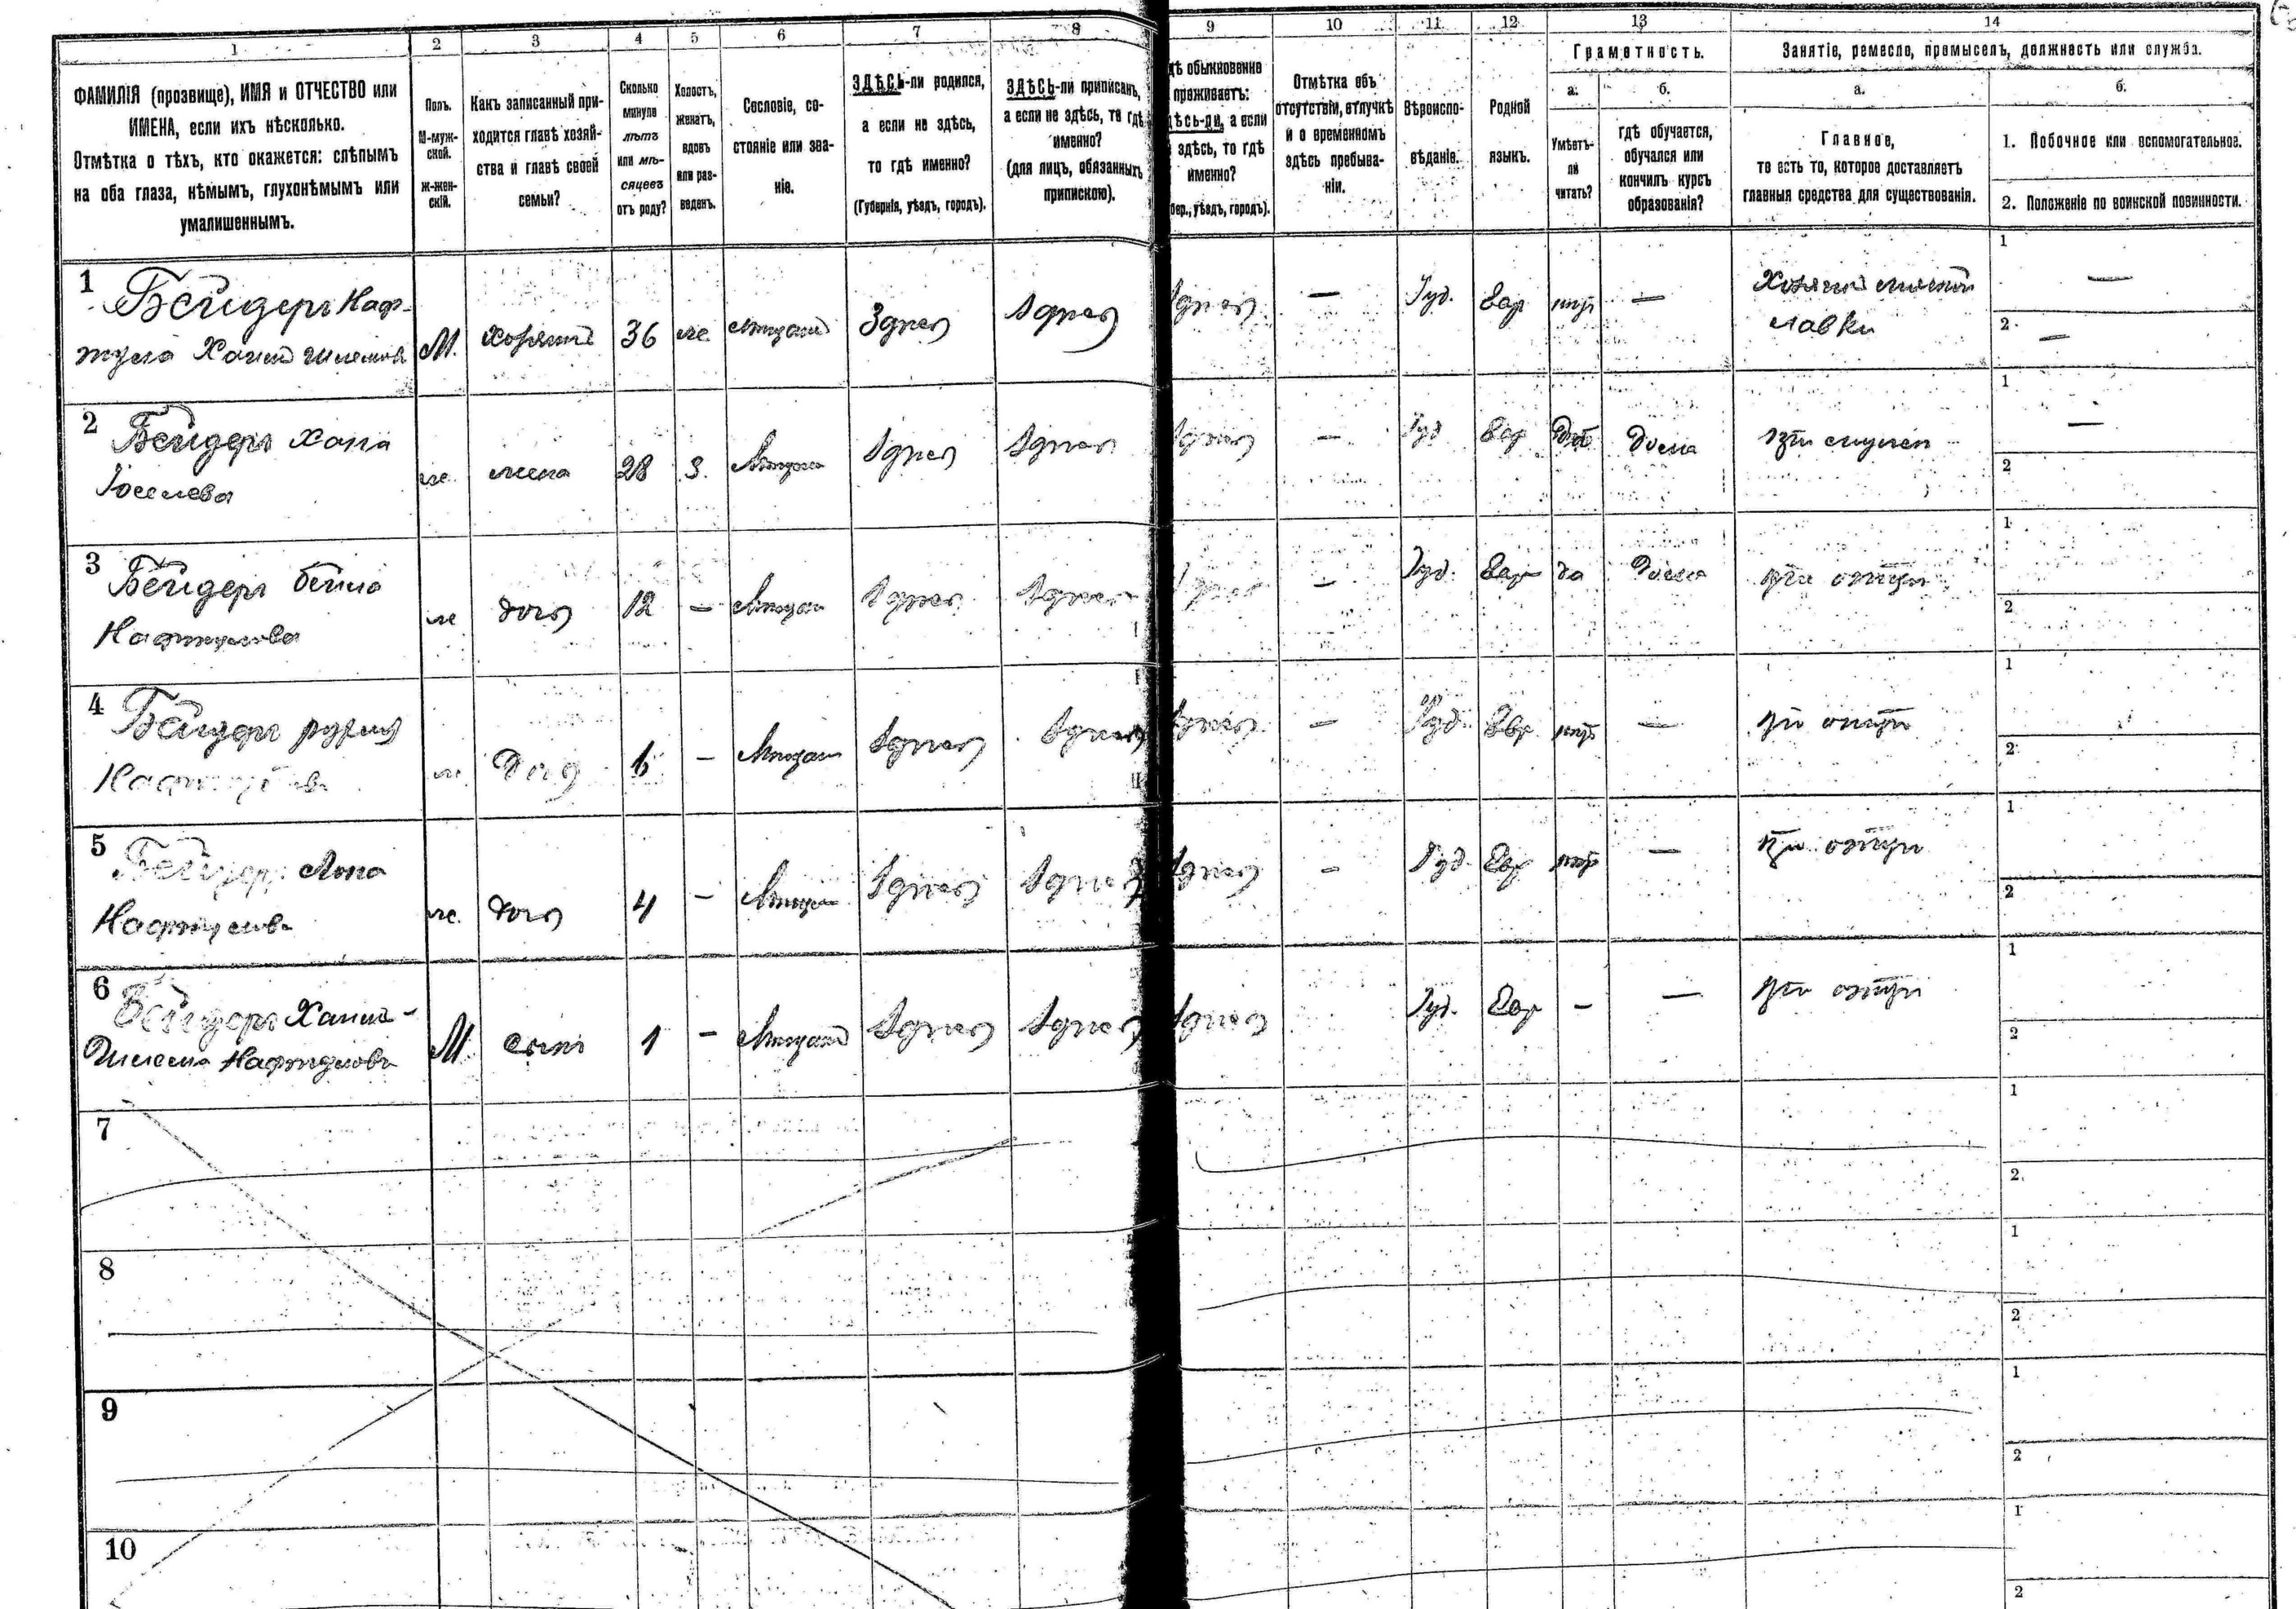 1 2 3 4 5 6 7 8 9 10 11 12 13 14
ФАМИЛІЯ (прозвище), ИМЯ и ОТЧЕСТВО или
ИМЕНА, если ихъ нѣсколько.
Отмѣтка о тѣхъ, кто окажется: слѣпымъ
на оба глаза, нѣмымъ, глухонѣмымъ или
умалишеннымъ.
Полъ.
М-муж-
ской.
ж-жен-
скій.
Какъ записанный при-
ходится главѣ хозяй-
ства и главѣ своей
семьи?
Сколько
минуло
лѣтъ
или мѣ-
сяцевъ
отъ роду?
Холостъ,
женатъ,
вдовъ
или раз-
веденъ.
Сословіе, со-
стояніе или зва-
ніе.
ЗДѢСЬ-ли родился,
а если не здѣсь,
то гдѣ именно?
(Губернія, уѣздъ, городъ).
ЗДѢСЬ-ли приписанъ,
а если не здѣсь, то гдѣ
именно?
(для лицъ, обязанныхъ
припискою).
дѣ обыкновенно
проживаетъ:
дѣсь-ли, а если
здѣсь, то гдѣ
именно?
бер., уѣздъ, городъ).
Отмѣтка объ
отсутствіи, отлучкѣ
и о временномъ
здѣсь пребыва-
ніи.
Вѣроиспо-
вѣданіе.
Родной
языкъ.
Грамотность.
а.
Умѣетъ-
ли
читать?
б.
гдѣ обучается,
обучался или
кончилъ курсъ
образованія?
Занятіе, ремесло, промыселъ, должность или служба.
а.
Главное,
то есть то, которое доставляетъ
главныя средства для существованія.
б.
1. Побочное или вспомогательное.
2. Положеніе по воинской повинности.
1 Бейдеръ Наф-
тула Хаим Шлемов М. хозяинъ 36 же. мѣщанин Здѣсь Здѣсь Здѣсь — Іуд. Евр нѣтъ — Хозяинъ
лавки
1 —
2 —
2 Бейдеръ Хана
Іоселева же. жена 28 З. Мѣщан Здѣсь Здѣсь Здѣсь — Іуд Евр Да Дома при
1 —
2
3 Бейдеръ Бейла
Нафтулова же дочь 12 — Мѣщан Здѣсь Здѣсь Здѣсь — Іуд. Евр да Дома при отцѣ
1
2
4 Бейдеръ
Нафтулова же. Дочь 6 — Мѣщан Здѣсь Здѣсь Здѣсь — Іуд. Евр нѣтъ — при отцѣ
1
2
5 Бейдеръ
Нафтулова же. дочь 4 — Мѣщан Здѣсь Здѣсь Здѣсь — Іуд. Евр нѣтъ — при отцѣ
1
2
6 Бейдеръ Хаим-
Шлема Нафтулов М. сынъ 1 — Мѣщанин Здѣсь Здѣсь Здѣсь Іуд. Евр — — при отцѣ
1
2
7
1
2
8
1
2
9
1
2
10
1
2